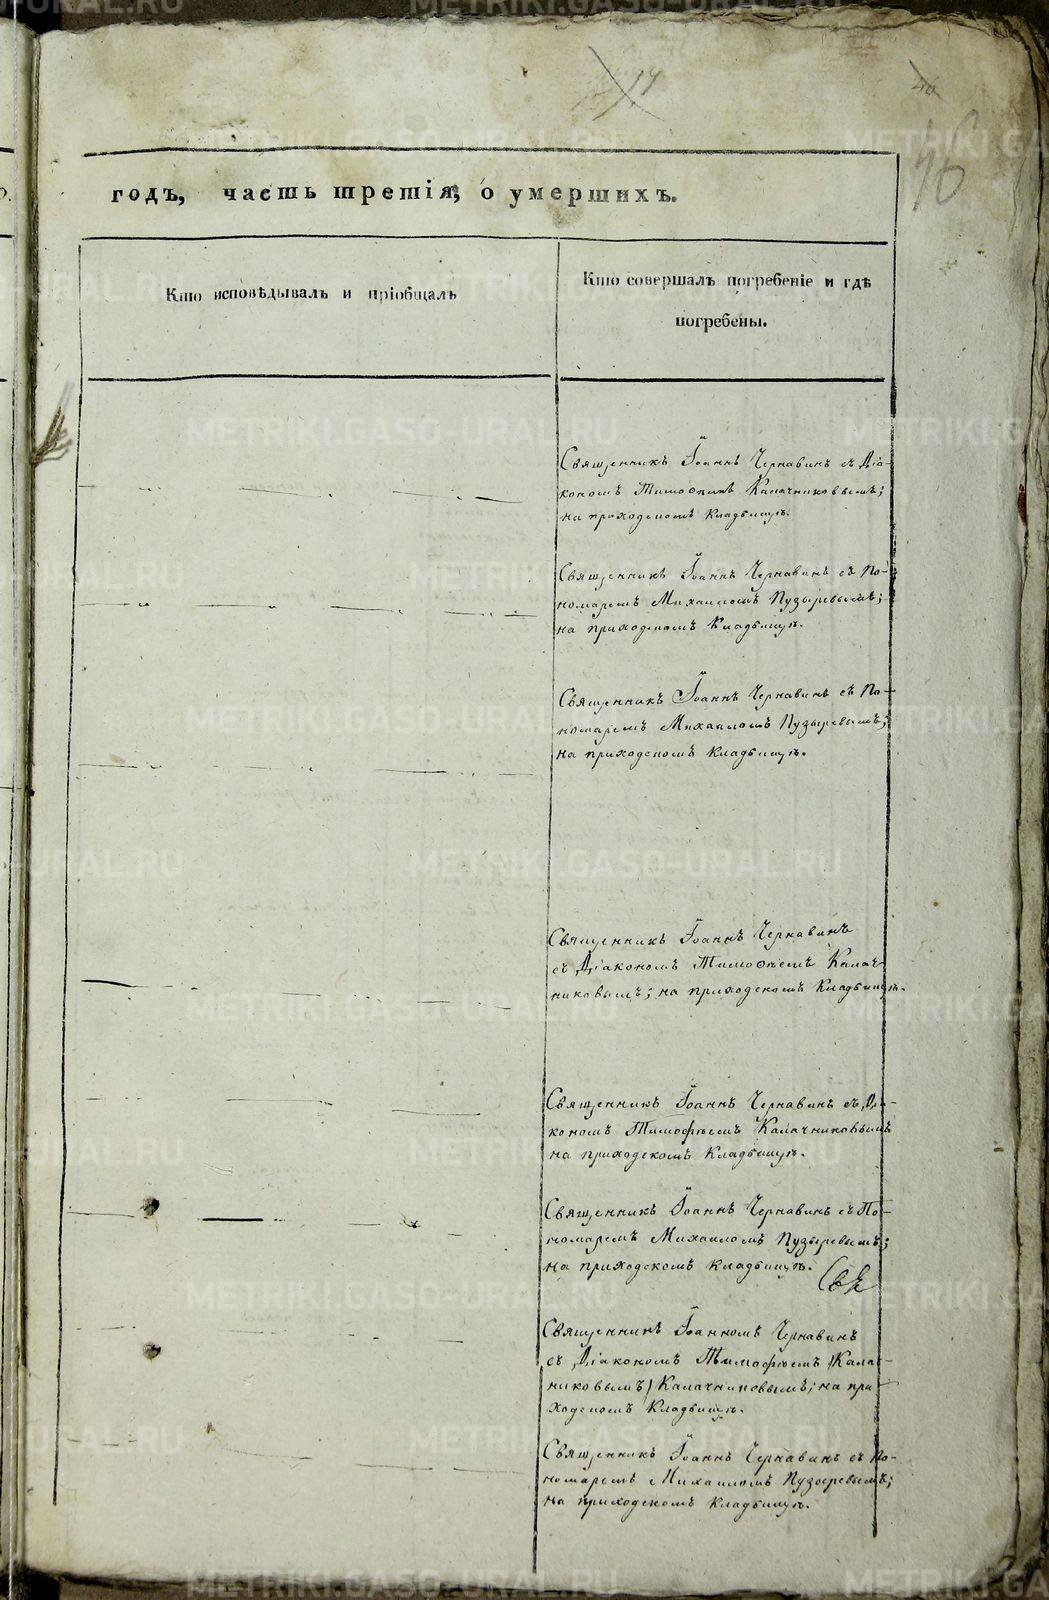 14
46
46
годъ, часть третія, о умершихъ.
Кто исповѣдывалъ и пріобщалъ
Кто совершалъ погребеніе и гдѣ
погребены.
Священникъ Іоаннъ Чернавинъ съ Діа-
кономъ Тимоѳеемъ Калачниковымъ;
на приходскомъ кладбищѣ.
Священникъ Іоаннъ Чернавинъ съ По-
номаремъ Михаиломъ Пузыревымъ;
на приходскомъ кладбищѣ.
Священникъ Іоаннъ Чернавинъ съ По-
номаремъ Михаиломъ Пузыревымъ;
на приходскомъ кладбищѣ.
Священникъ Іоаннъ Чернавинъ
съ Діакономъ Тимоѳеемъ Калач-
никовымъ; на приходскомъ кладбищѣ.
Священникъ Іоаннъ Чернавинъ съ Діа-
кономъ Тимофѣемъ Калачниковымъ
на приходскомъ кладбищѣ.
Священникъ Іоаннъ Чернавинъ съ По-
номаремъ Михаиломъ Пузыревымъ;
на приходскомъ кладбищѣ.
Священникъ Іоанномъ Чернавинъ
съ Діакономъ Тимофѣемъ (Калач-
никовымъ) Калачниковымъ; на при-
ходскомъ кладбищѣ.
Священникъ Іоаннъ Чернавинъ съ По-
номаремъ Михаиломъ Пузыревымъ;
на приходскомъ кладбищѣ.
METRIKI.GASO-URAL.RU